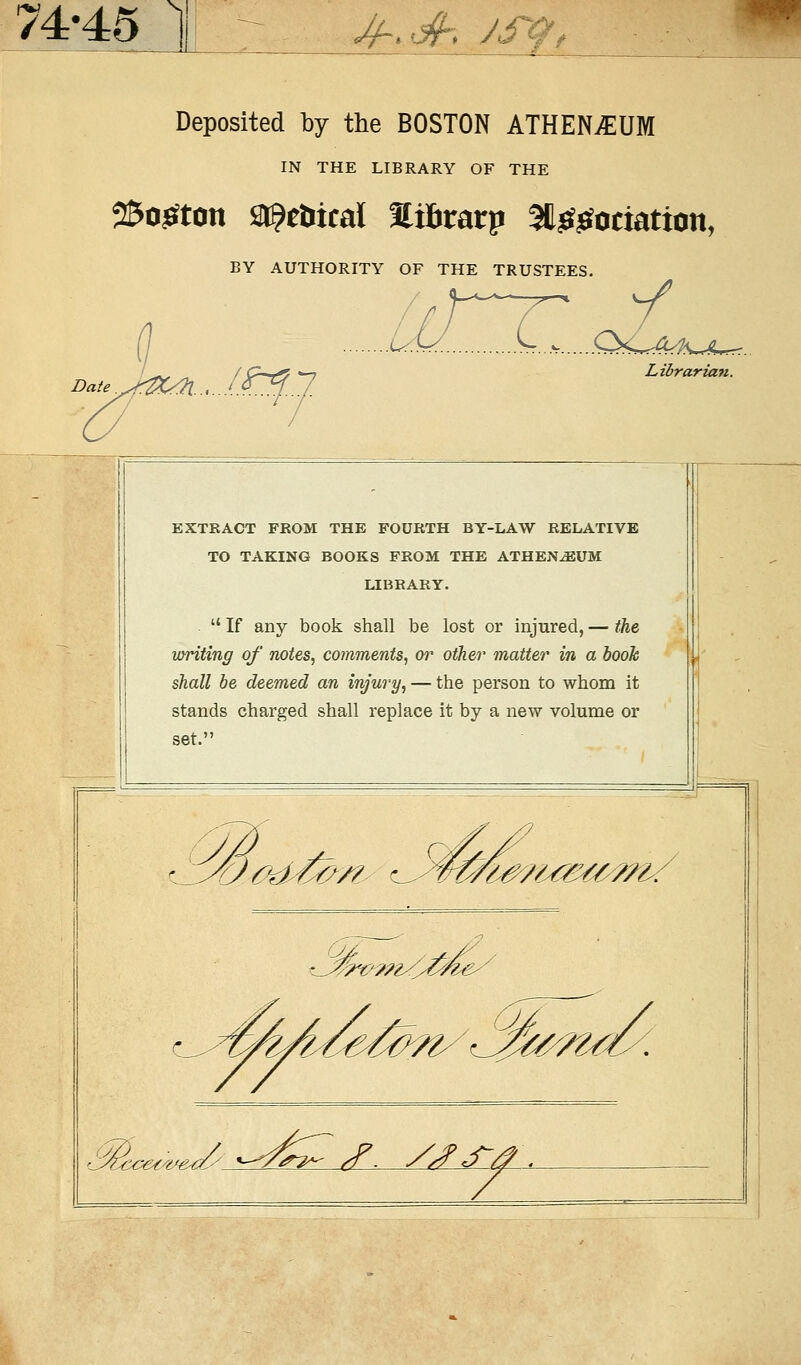 74·45
4. A. 159.
Deposited by the BOSTON ATHENÆUM
IN THE LIBRARY OF THE
Boston Medical Library Association,
BY AUTHORITY OF THE TRUSTEES.
Wm T. Lane
Librarian.
Date Jan. 1897
EXTRACT FROM THE FOURTH BY-LAW RELATIVE
TO TAKING BOOKS FROM THE ATHENÆUM
LIBRARY.
"If any book shall be lost or injured,—the
writing of notes, comments, or other matter in a book
shall be deemed an injury,—the person to whom it
stands charged shall replace it by a new volume or
set."
Boston Athenæum.
From the
Appleton Fund.
Received Nov 8. 1859.